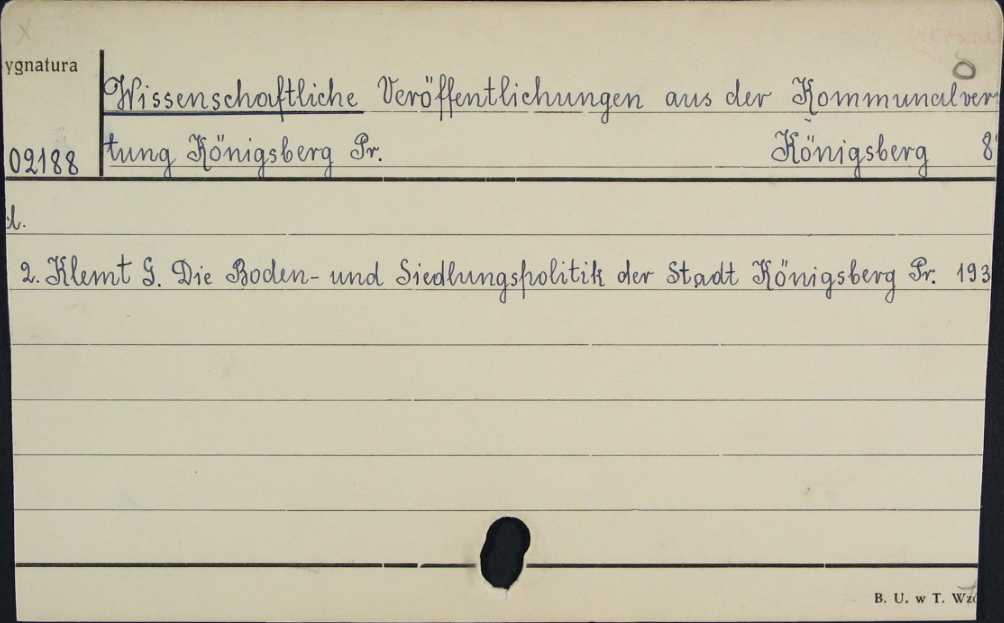 ygnatura
02188
Wissenschaftliche Veröffentlichungen aus der Kommunalver
tung Königsberg Pr. Königsberg 8
d.
2. Klemt G. Die Boden- und Siedlungspolitik der Stadt Königsberg Pr. 193
B. U. w T. Wzó